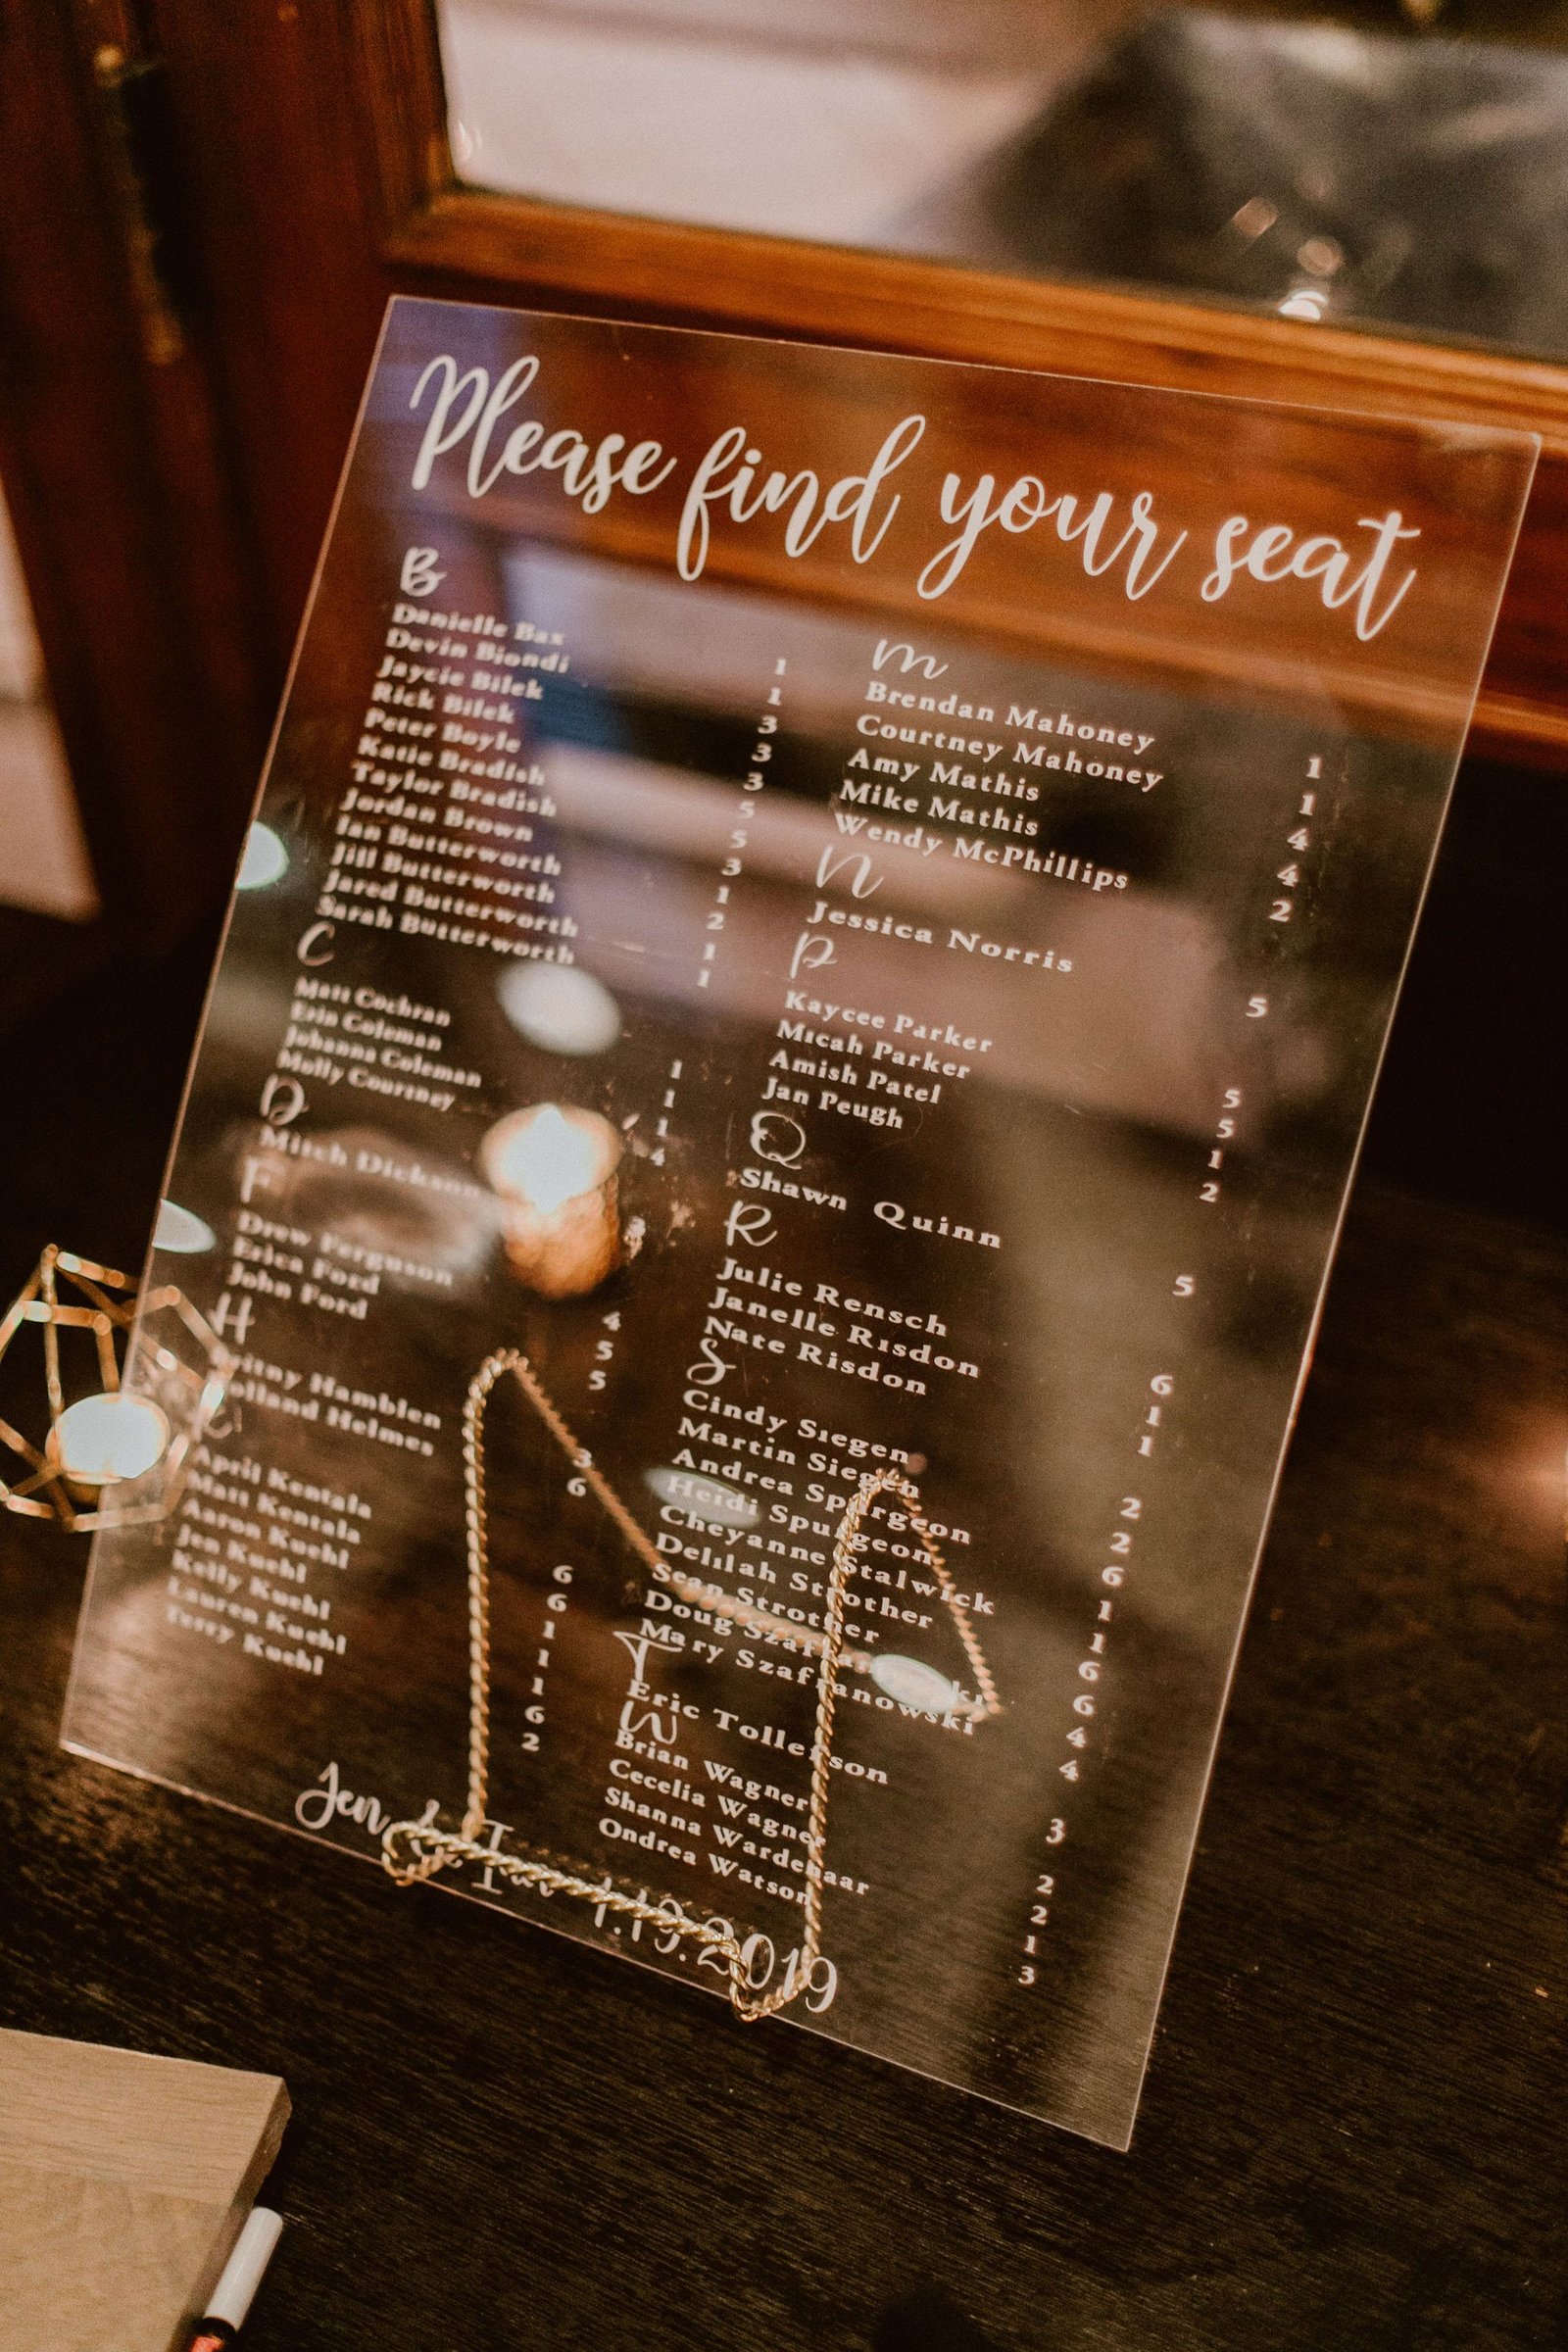 Please find your seat
B
Danielle Bax 1
Devin Biondi 1
Jaycie Bilek 3
Rick Bilek 3
Peter Boyle 3
Katie Bradish 5
Taylor Bradish 5
Jordan Brown 3
Ian Butterworth 1
Jill Butterworth 2
Jared Butterworth 1
Sarah Butterworth 1
C
Matt Cochran 1
Erin Coleman 1
Johanna Coleman 1
Molly Courtney 4
D
Mitch Dickson 3
F
Drew Ferguson 4
Erica Ford 5
John Ford 5
H
Hamblen 3
Holland Helmes 6
April Kentala 6
Matt Kentala 6
Aaron Kuehl 1
Jen Kuehl 1
Kelly Kuehl 1
Lauren Kuehl 6
Terry Kuehl 2
M
Brendan Mahoney 1
Courtney Mahoney 1
Amy Mathis 4
Mike Mathis 4
Wendy McPhillips 2
N
Jessica Norris 5
P
Kaycee Parker 5
Micah Parker 5
Amish Patel 1
Jan Peugh 2
Q
Shawn Quinn 5
R
Julie Rensch 6
Janelle Risdon 1
Nate Risdon 1
S
Cindy Siegen 2
Martin Siegen 2
Andrea Spurgeon 6
Heidi Spurgeon 1
Cheyanne Stalwick 1
Delilah Strother 6
Sean Strother 6
Doug Szafranowski 4
Mary Szafranowski 4
T
Eric Tollefson 3
W
Brian Wagner 2
Cecelia Wagner 2
Shanna Wardenaar 1
Ondrea Watson 3
Jen & 1.19.2019